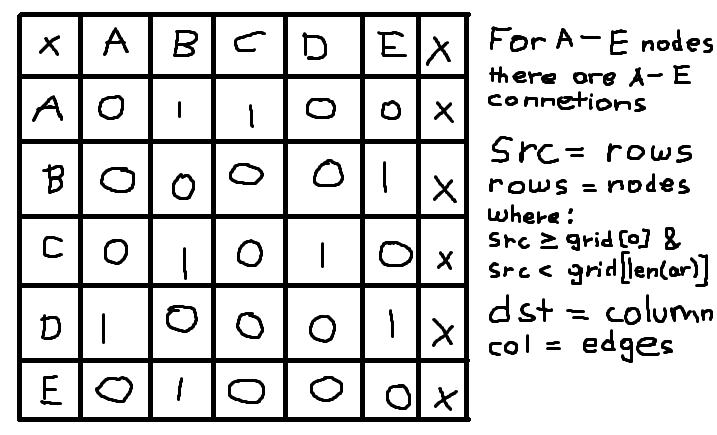 x A B C D E X
A 0 1 1 0 0 x
B 0 0 0 0 1 X
C 0 1 0 1 0 x
D 1 0 0 0 1 X
E 0 1 0 0 0 x
For A-E nodes
there are A-E
connetions
Src = rows
rows = nodes
where:
src ≥ grid[0] &
src < grid[len(ar)]
dst = column
col = edges